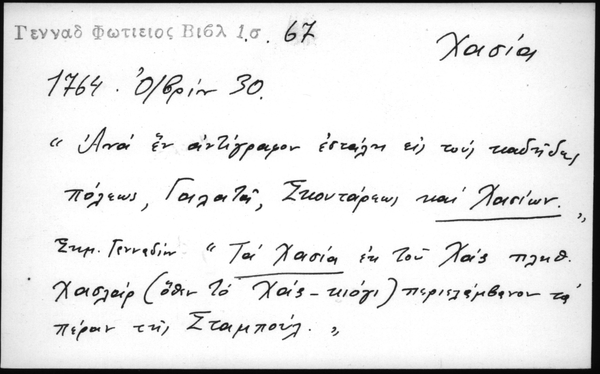 Γενναδ Φωτιειος Βιβλ 1.σ. 67
Χασία
1764. Ὀ/βρίν 30.
"Ἀνά ἕν ἀντίγραφον ἐστάλη εἰς τούς καδῆδες
πόλεως, Γαλατᾶ, Σκουτάρεως καί Χασίων.„
Σημ. Γενναδίου "Τά Χασία ἐκ τοῦ Χάς πληθ.
Χασλάρ (ὅθεν τό Χάς-κιόγι) περιελάμβανον τά
πέραν τῆς Σταμπούλ.„